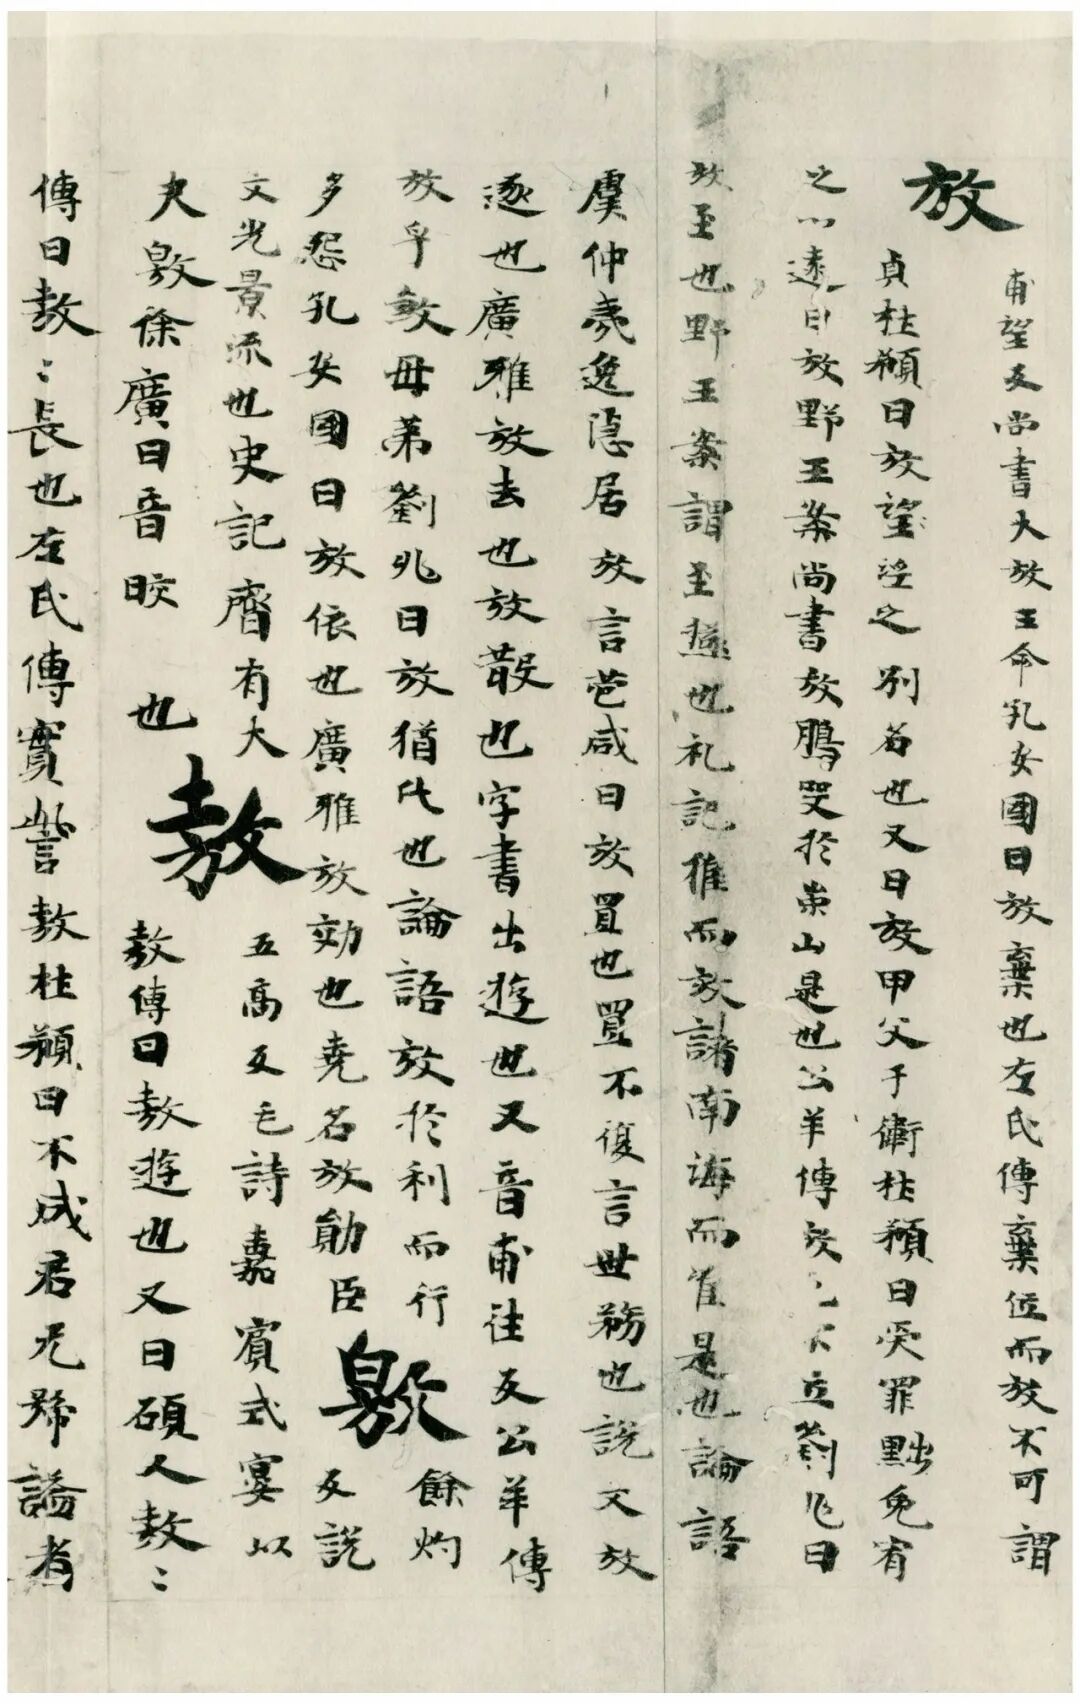 放 甫望反尚書大放王命孔安國曰放棄也左氏傳棄位而放不可謂
貞杜預曰放望淫之別名也又曰放甲父于衛杜預曰受罪黜免宥
之以遠曰放野王案尚書放鵬吺於崇山是也公羊傳放 立劉兆曰
放至也野王案謂至極也礼記推而放諸南海而准是也論語
虞仲夷逸隱居放言苞咸曰放置也置不復言世務也說文放
逐也廣雅放去也放散也字書出遊也又音甫往反公羊傳
放乎敚母弟劉兆曰放猶比也論語放於利而行
多怨孔安國曰放依也廣雅放効也堯名放勛臣 敫 餘灼反說
文光景流也史記齊有大
夫敫徐廣曰音皎也 敖 五高反毛詩嘉賓式宴以
敖傳曰敖遊也又曰碩人敖〻
傳曰敖〻長也左氏傳實訾敖杜預曰不成君无號謚者